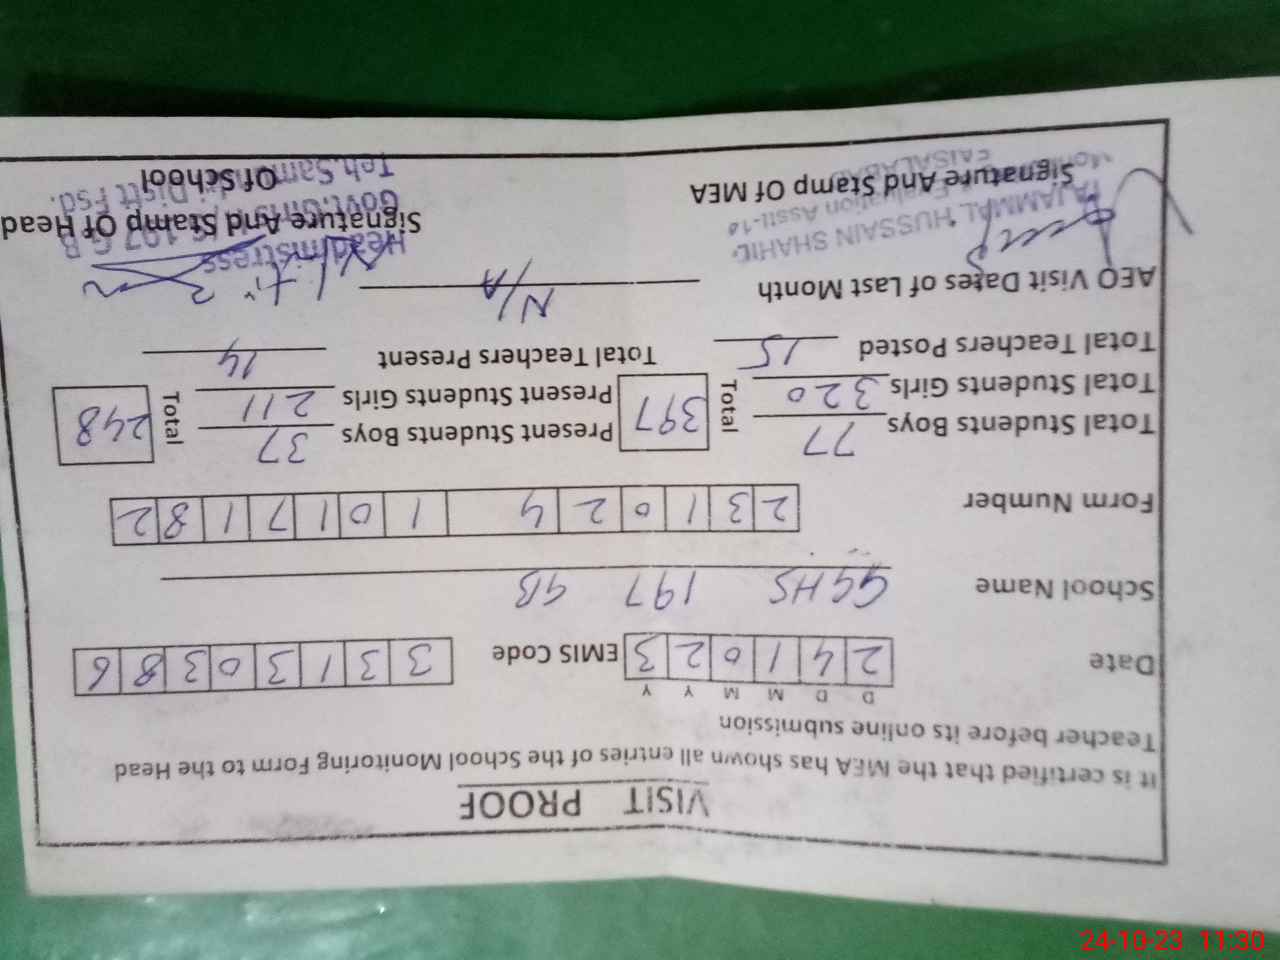 VISIT PROOF
It is certified that the MEA has shown all entries of the School Monitoring Form to the Head
Teacher before its online submission
D D M M Y Y
Date 2 4 1 0 2 3 EMIS Code 3 3 1 3 0 3 8 6
School Name GGHS 197 GB
Form Number 2 3 1 0 2 4 1 0 1 7 1 8 2
Total Students Boys 77 Total 397 Present Students Boys 37 Total 248
Total Students Girls 320 Present Students Girls 211
Total Teachers Posted 15 Total Teachers Present 14
AEO Visit Dates of Last Month N/A
TAJAMMAL HUSSAIN SHAHID
Evaluation Asstt-
FAISALABAD
Signature And Stamp Of MEA
Headmistress
Govt.Girls 197 G.B
Distt Fsd.
Signature And Stamp Of Head
Of School
24-10-23 11:30